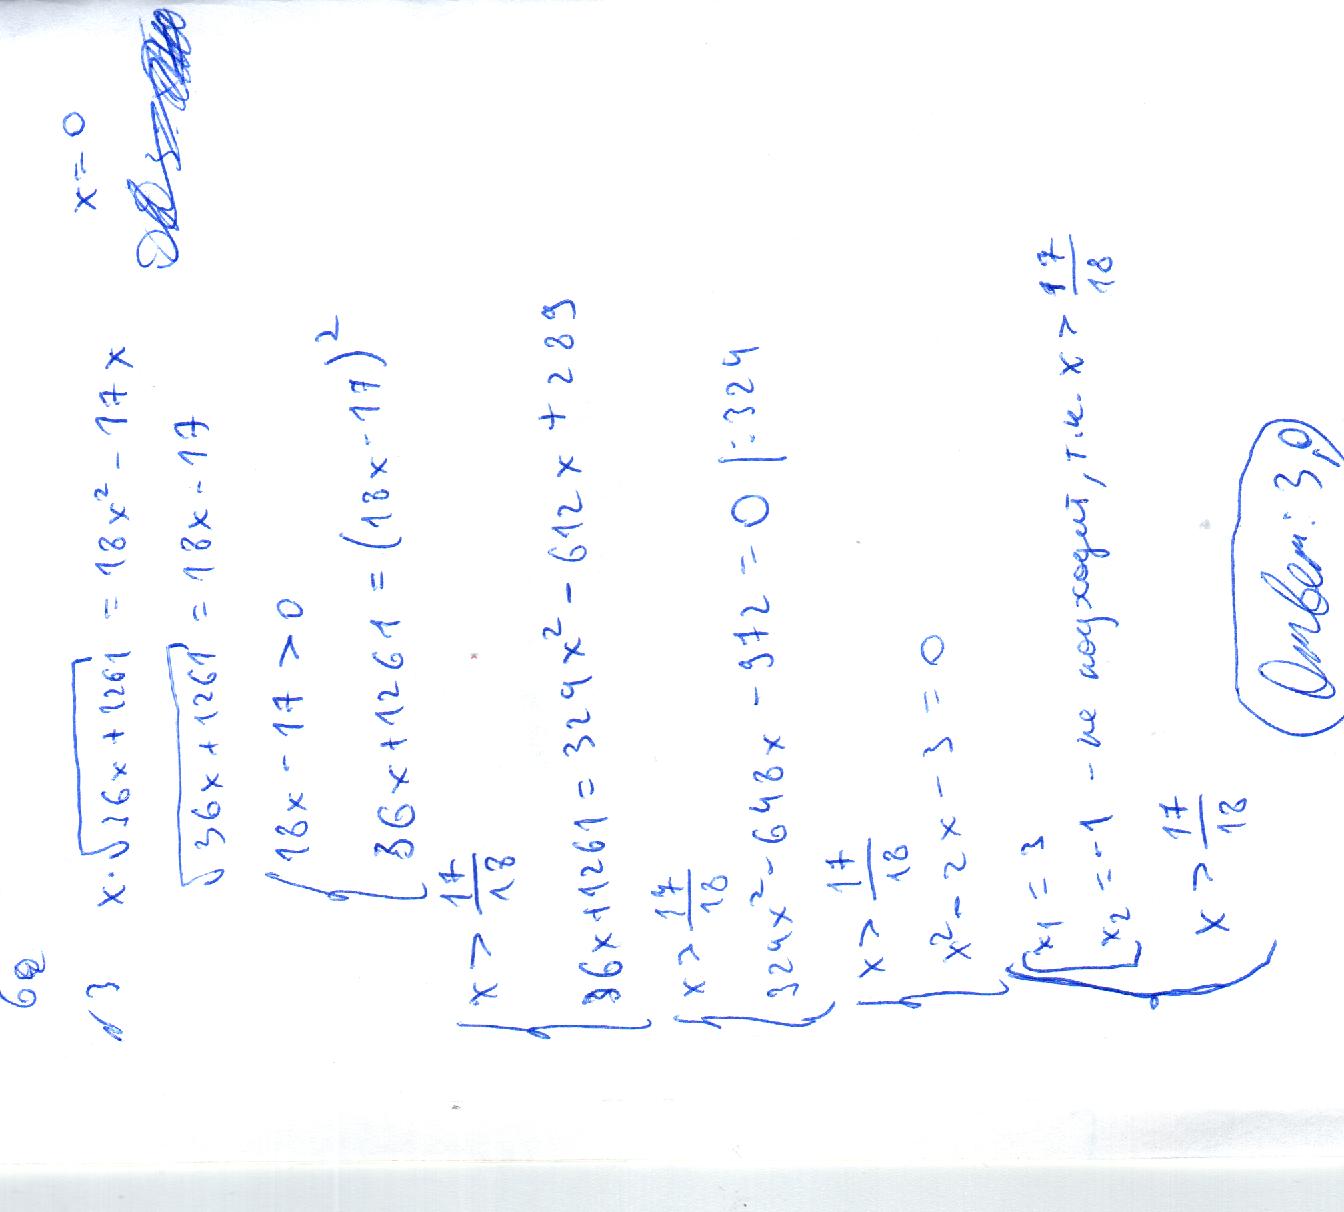 6a
√3 x·√36x+1261 = 18x² - 17x x=0
√36x+1261 = 18x-17
{ 18x-17>0
36x+1261=(18x-17)²
{ x > 17/18
36x+1261=324x²-612x+289
{ x > 17/18
324x²-648x-972=0 |:324
{ x > 17/18
x²-2x-3=0
{ [ x₁=3
x₂=-1 - не подходит, т.к. x > 17/18
x > 17/18
Ответ: 3,0